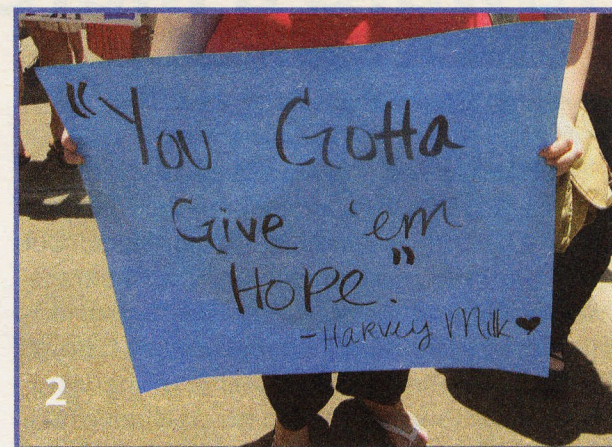 "You Gotta
Give 'em
Hope."
-Harvey Milk ♥
2